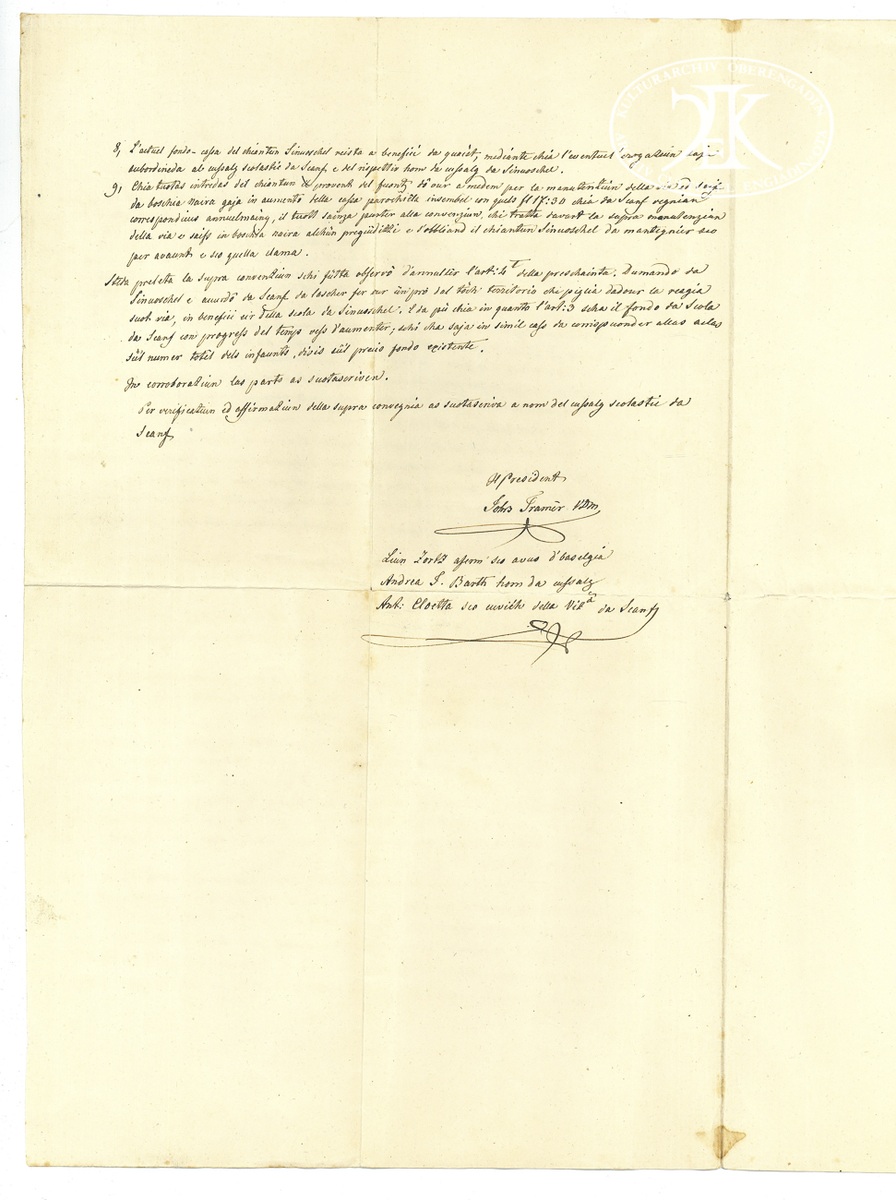 KULTURARCHIV OBERENGADIN
8, L'actuel fondo-cassa del chiantun Sinuoschel reista a benefizi da quaist, mediante chia l'eventuel' erogatiun saja
subordineda al cussalg scolastic da Scanf e del rispettiv hom da cussalg da Sinuoschel.
9, Chia tuottas intredas del chiantun provent del fuonz dô our a medem per la manutentiun della
da boschia naira gaja in aumento della cassa parochiela insembel con quels fl 17:30 chia da Scanf vegnian
correspondieus annuelmaing, il tuott sainza purter alla convenziun, chi tratta davart la supra manutenziun
della via e saiss in boschia naira alchün pregiüdizi e s'obbliand il chiantun Sinuoschel da mantegnier sco
per avaunt e sco quella clama.
preleta la supra conventiun schi fütta observô d'annuller l'art: 4t della preschainta. Dumando da
Sinuoschel e da Scanf da lascher fer sur ün prô dal töch territorio chi piglia dadour la resgia
suot via, in benefizi eir della scola da Sinuoschel. E da più chia in quanto l'art: 3 scha il fondo da Scola
da Scanf con progress del temp vess d'aumenter; schi cha saja in simil cass da corrispuonder allas
sül numer totel dels infaunts, disis sül precis fondo existente.
In corroboratiun las parts as suottascriven.
Per verificatiun ed affirmatiun della supra convegnia as suottascriva a nom del cussalg scolastic da
Scanf
Il President
Johs Tramèr VDM,
Liun afferm sco avuo d'baselgia
Andrea J. Barth hom da cussalg
Ant: Cloetta sco cuvich della Vib.a da Scanf